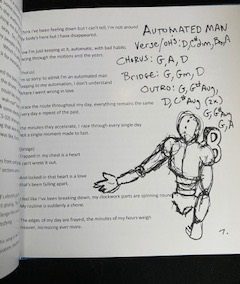 think I've been feeling down but I can't tell, I'm not around
my body's here but I have disappeared.
now I'm just keeping at it, automatic, with bad habits,
going through the motions and the years.
so sorry to admit I'm an automated man
keeping to my automation, I don't understand
where I went wrong in love.
trace the route through your day, everything remains the same
every day a repeat of the past.
the minutes they accelerate, I race through every single day
not a single moment made to last.
(bridge)
Trapped in my chest is a heart
can't wrest it out.
And locked in that heart is a love
that's been falling apart.
I feel like I've been breaking down, my clockwork parts are spinning round
My routine is suddenly a chore.
The edges of my day are frayed, the minutes of my hours weigh
forever, increasing ever more.
AUTOMATED MAN
Verse/
CHORUS: G, A, D
BRIDGE: G, Gm, D
OUTRO: G, G#Aug,
D, C#Aug (2x)
G, G#Aug
G, A